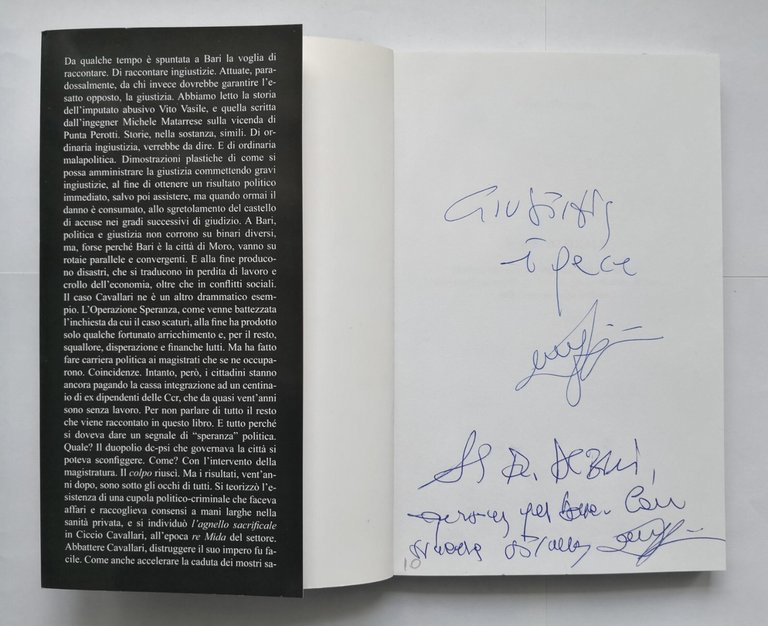 Da qualche tempo è spuntata a Bari la voglia di
raccontare. Di raccontare ingiustizie. Attuate, para-
dossalmente, da chi invece dovrebbe garantire l'e-
satto opposto, la giustizia. Abbiamo letto la storia
dell'imputato abusivo Vito Vasile, e quella scritta
dall'ingegner Michele Matarrese sulla vicenda di
Punta Perotti. Storie, nella sostanza, simili. Di or-
dinaria ingiustizia, verrebbe da dire. E di ordinaria
malapolitica. Dimostrazioni plastiche di come si
possa amministrare la giustizia commettendo gravi
ingiustizie, al fine di ottenere un risultato politico
immediato, salvo poi assistere, ma quando ormai il
danno è consumato, allo sgretolamento del castello
di accuse nei gradi successivi di giudizio. A Bari,
politica e giustizia non corrono su binari diversi,
ma, forse perché Bari è la città di Moro, vanno su
rotaie parallele e convergenti. E alla fine produco-
no disastri, che si traducono in perdita di lavoro e
crollo dell'economia, oltre che in conflitti sociali.
Il caso Cavallari ne è un altro drammatico esem-
pio. L'Operazione Speranza, come venne battezzata
l'inchiesta da cui il caso scaturì, alla fine ha prodotto
solo qualche fortunato arricchimento e, per il resto,
squallore, disperazione e finanche lutti. Ma ha fatto
fare carriera politica ai magistrati che se ne occupa-
rono. Coincidenze. Intanto, però, i cittadini stanno
ancora pagando la cassa integrazione ad un centina-
io di ex dipendenti delle Ccr, che da quasi vent'anni
sono senza lavoro. Per non parlare di tutto il resto
che viene raccontato in questo libro. E tutto perché
si doveva dare un segnale di “speranza” politica.
Quale? Il duopolio dc-psi che governava la città si
poteva sconfiggere. Come? Con l'intervento della
magistratura. Il colpo riuscì. Ma i risultati, vent'an-
ni dopo, sono sotto gli occhi di tutti. Si teorizzò l'e-
sistenza di una cupola politico-criminale che faceva
affari e raccoglieva consensi a mani larghe nella
sanità privata, e si individuò l'agnello sacrificale
in Ciccio Cavallari, all'epoca re Mida del settore.
Abbattere Cavallari, distruggere il suo impero fu fa-
cile. Come anche accelerare la caduta dei mostri sa-
è pace
per bene. Con
10